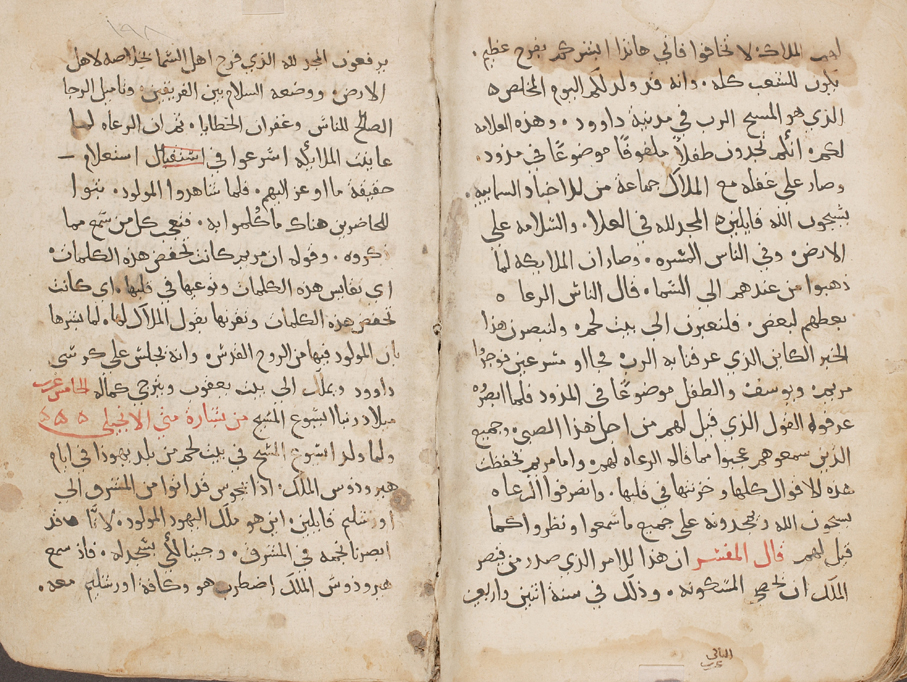 لهم الملاك لا تخافوا فاني هاندا ابشركم بفرح عظيم .
يكون للشعب كله . وانه قد ولد لكم اليوم المخلص ه
الذي هو المسيح الرب في مدينة داوود . وهذه العلامه
لكم . انكم تجدون طفلاً ملفوفًا موضوعًا في مزود .
وصار على غفله مع الملاك جماعة من الاجناد السمايية .
يسبحون الله قايلين ه المجد لله في العلا . والسلامه على
الارض . وفي الناس المسره . وصار ان الملايكه لما
ذهبوا من عندهم الى السما . قال الناس الرعا ه
بعضهم لبعض . فلنعبرن الى بيت لحم . ولنبصرن هذا
الخبر الكاين الذي عرفنا به الرب فجااو مسرعين فوجدوا
مريم . ويوسف والطفل موضوعًا في المزود فلما ابصروه
عرفوا القول الذي قيل لهم من اجل هذا الصبي . وجميع
الذين سمعوهم عجبوا مما قاله الرعاه لهم . واما مريم فحفظت
هذه الاقوال كلها وخزنتها في قلبها . وانصرفوا الرعاه
يسبحون الله ويمجدونه على جميع ما سمعوا ونظروا كما
قيل لهم قال المفسر ان هذا الامر الذي صدر من قيصر
الملك ان المسكونه . وذلك في سنة اثنين واربعين
الثاني
عرب
يرفعون المجد لله الذي فرح اهل السما بخلاصه لاهل
الارض . ووضعه السلام بين الفريقين . وتاميل الرجا
الصالح للناس وغفران الخطايا . ثم ان الرعاه لما
عاينت الملايكه اشرعوا في استقبال استعلام —
حقيقة ما اوعز اليهم . فلما شاهدوا المولود . بثوا
للحاضرين هناك ما كُلموا به . فتعجب كل من سمع مما
ذكروه . وقوله ان مريم كانت تحفض هذه الكلمات .
اي تقايس هذه الكلمات وتوعيها في قلبها . اي كانت
تحفض هذه الكلمات وتقرنها بقول الملاك لها . لما بشرها
بان المولود فيها من الروح القدس . وانه يجلس على كرسي
داوود ويملك الى بيت يعقوب ويترجى كماله الخامس عرب
ميلاد ربنا ايسوع المسيح من بشارة متى الانجيلي
ولما ولد ايسوع المسيح في بيت لحم من بلد يهوذا في ايام
هيرودوس الملك . اذا مجوس قد اتوا من المشرق الى
اورشليم قايلين . اين هو ملك اليهود المولود . لاننا قد
ابصرنا نجمه في المشرق . وجينا لكي نسجد له . فاذ سمع
هيرودوس الملك اضطرب هو وكافة اورشليم معه .